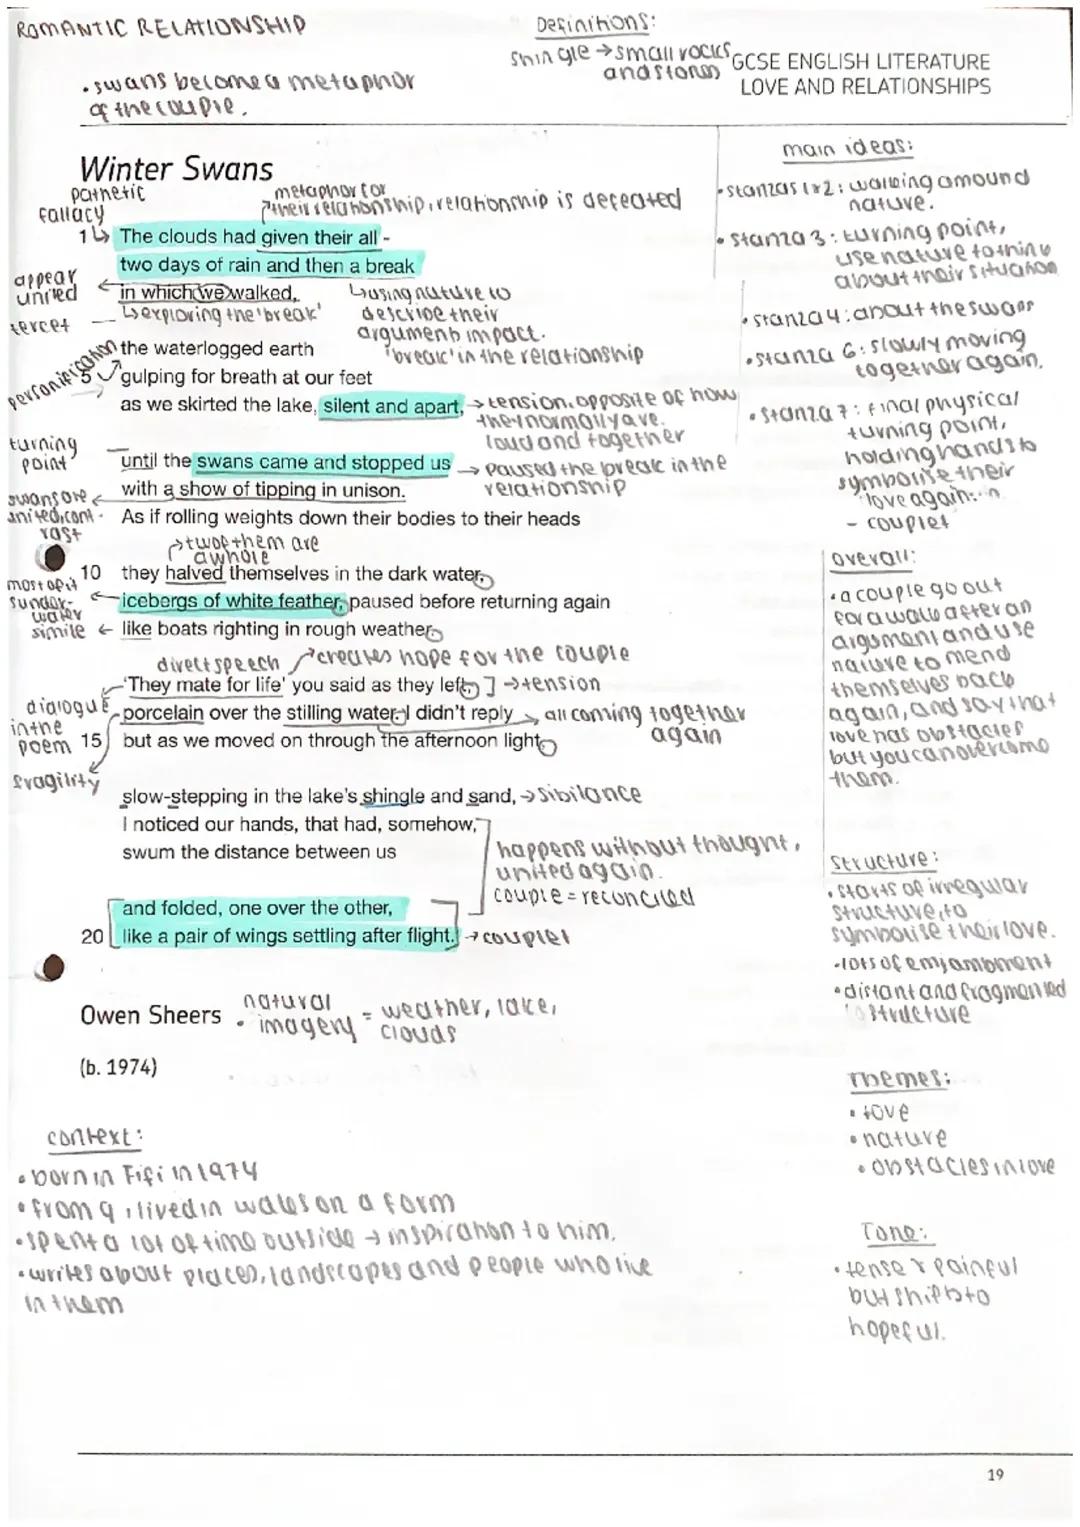 ROMANTIC RELATIONSHIP
Definitions:
shingle → small rocks
and stones
GCSE ENGLISH LITERATURE
LOVE AND RELATIONSHIPS
• swans become a metaphor
of the couple.
Winter Swans
pathetic
fallacy
metaphor for
their relationship, relationship is defeated
1 The clouds had given their all -
two days of rain and then a break
in which we walked,
appear
united
tercet
↳ exploring the 'break'
↳ using nature to
describe their
arguments impact.
'break' in the relationship
personification
the waterlogged earth
5 gulping for breath at our feet
as we skirted the lake, silent and apart,
→ tension. opposite of how
they normally are.
loud and together
turning
point
until the swans came and stopped us
with a show of tipping in unison.
As if rolling weights down their bodies to their heads
→ paused the break in the
relationship
swans are
united, cont-
rast
→ two of them are
a whole
10 they halved themselves in the dark water,
icebergs of white feather, paused before returning again
like boats righting in rough weather.
most of it
under-
water
simile ←
direct speech
creates hope for the couple
'They mate for life' you said as they left,
porcelain over the stilling water. I didn't reply
15 but as we moved on through the afternoon light,
] → tension
→ all coming together
again
dialogue
in the
poem
fragility
slow-stepping in the lake's shingle and sand,
→ sibilance
I noticed our hands, that had, somehow,
swum the distance between us
happens without thought,
united again.
couple = reconciled
and folded, one over the other,
20 like a pair of wings settling after flight.
→ couplet
Owen Sheers
(b. 1974)
• natural
imagery = weather, lake,
clouds
context:
• born in Fifi in 1974
• from 9, lived in wales on a farm
• spent a lot of time outside → inspiration to him.
• writes about places, landscapes and people who live
in them
main ideas:
• stanzas 1 & 2: walking around
nature.
• stanza 3: turning point,
use nature to think
about their situation
• stanza 4: about the swans
• stanza 6: slowly moving
together again.
• stanza 7: final physical
turning point,
holding hands to
symbolise their
love again.
- couplet
overall:
• a couple go out
for a walk after an
argument and use
nature to mend
themselves back
again, and say that
love has obstacles
but you can overcome
them.
structure:
• starts of irregular
structure, to
symbolise their love.
- lots of emjambment
• distant and fragmented
structure
Themes:
• love
• nature
• obstacles in love
Tone:
• tense & painful
but shifts to
hopeful.
19